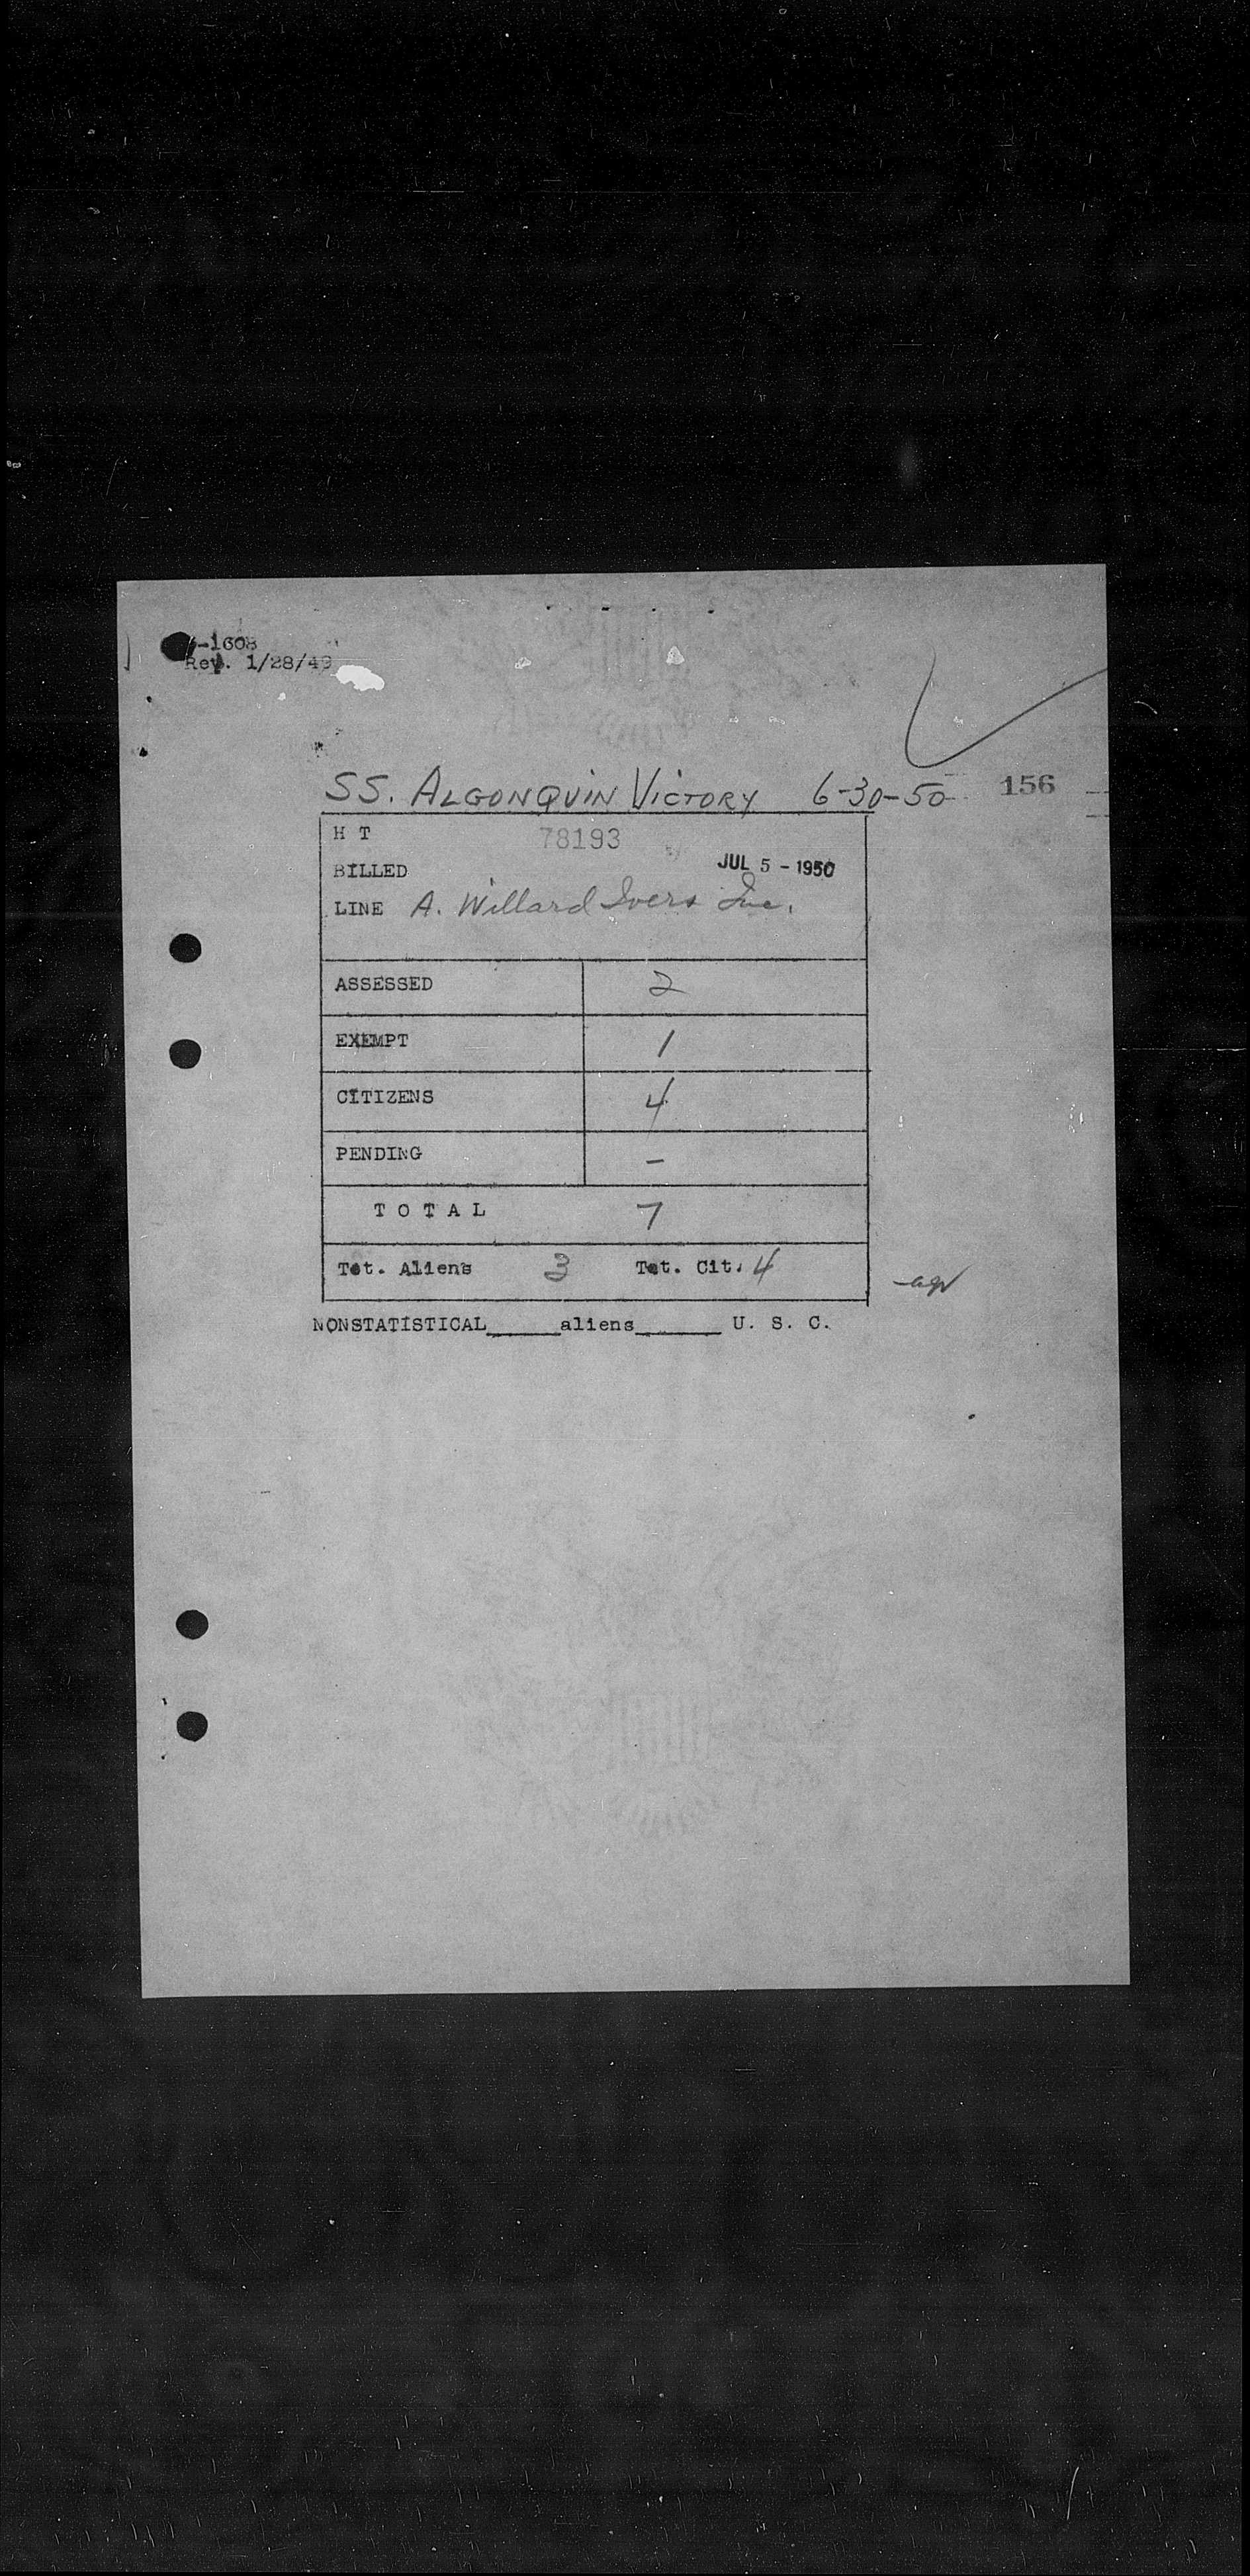 -1608
Rev. 1/28/49
SS. ALGONQUIN VICTORY 6-30-50 156
H T 78193
BILLED JUL 5 - 1950
LINE A. Willard Ivers Inc.
ASSESSED 2
EXEMPT 1
CITIZENS 4
PENDING –
T O T A L 7
Tot. Aliens 3 Tot. Cit. 4
NONSTATISTICAL_____aliens______ U. S. C.